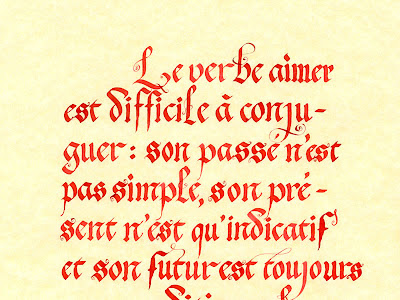 Le verbe aimer
est difficile à conju-
guer : son passé n'est
pas simple, son pré-
sent n'est qu'indicatif
et son futur est toujours